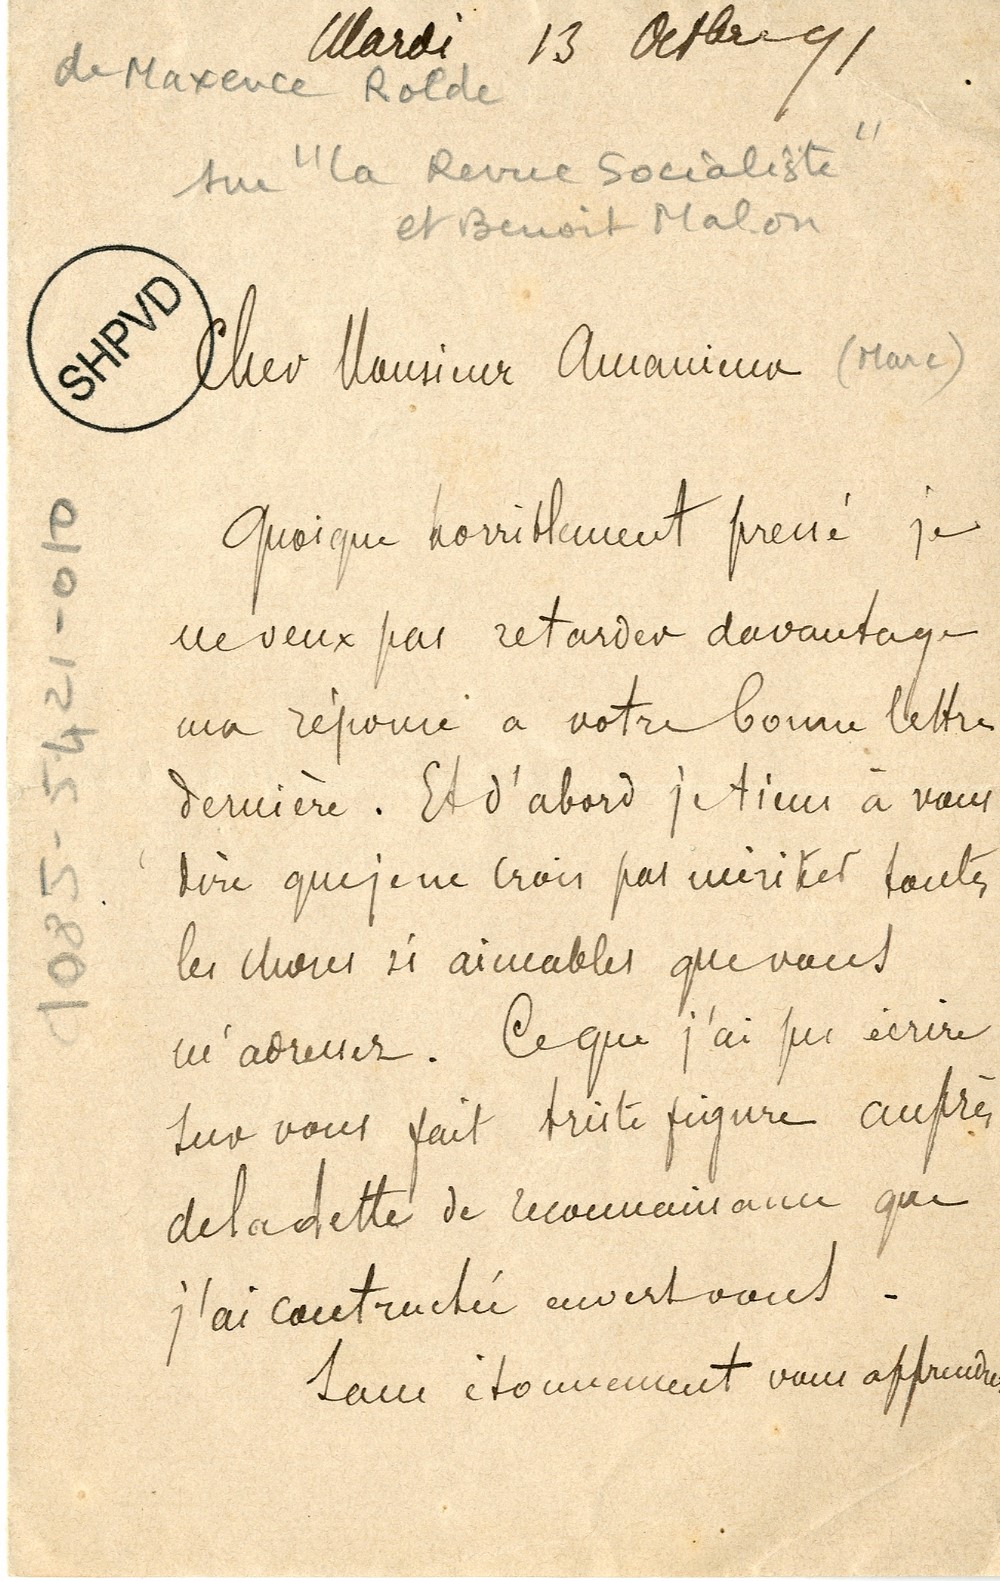 Mardi 13 Octbre 91
de Maxence Rolde
sur "la Revue Socialiste"
et Benoit Malon
SHPVD
Cher Monsieur Amanieux (Marc)
1085-5421-010
Quoique horriblement pressé je
ne veux pas retarder davantage
ma réponse a votre bonne lettre
dernière. Et d'abord je tiens à vous
dire que je ne crois pas mériter toutes
les choses si aimables que vous
m'adressez. Ce que j'ai pu écrire
sur vous fait triste figure auprès
de la dette de reconnaissance que
j'ai contractée envers vous.
Sans étonnement vous apprendrez